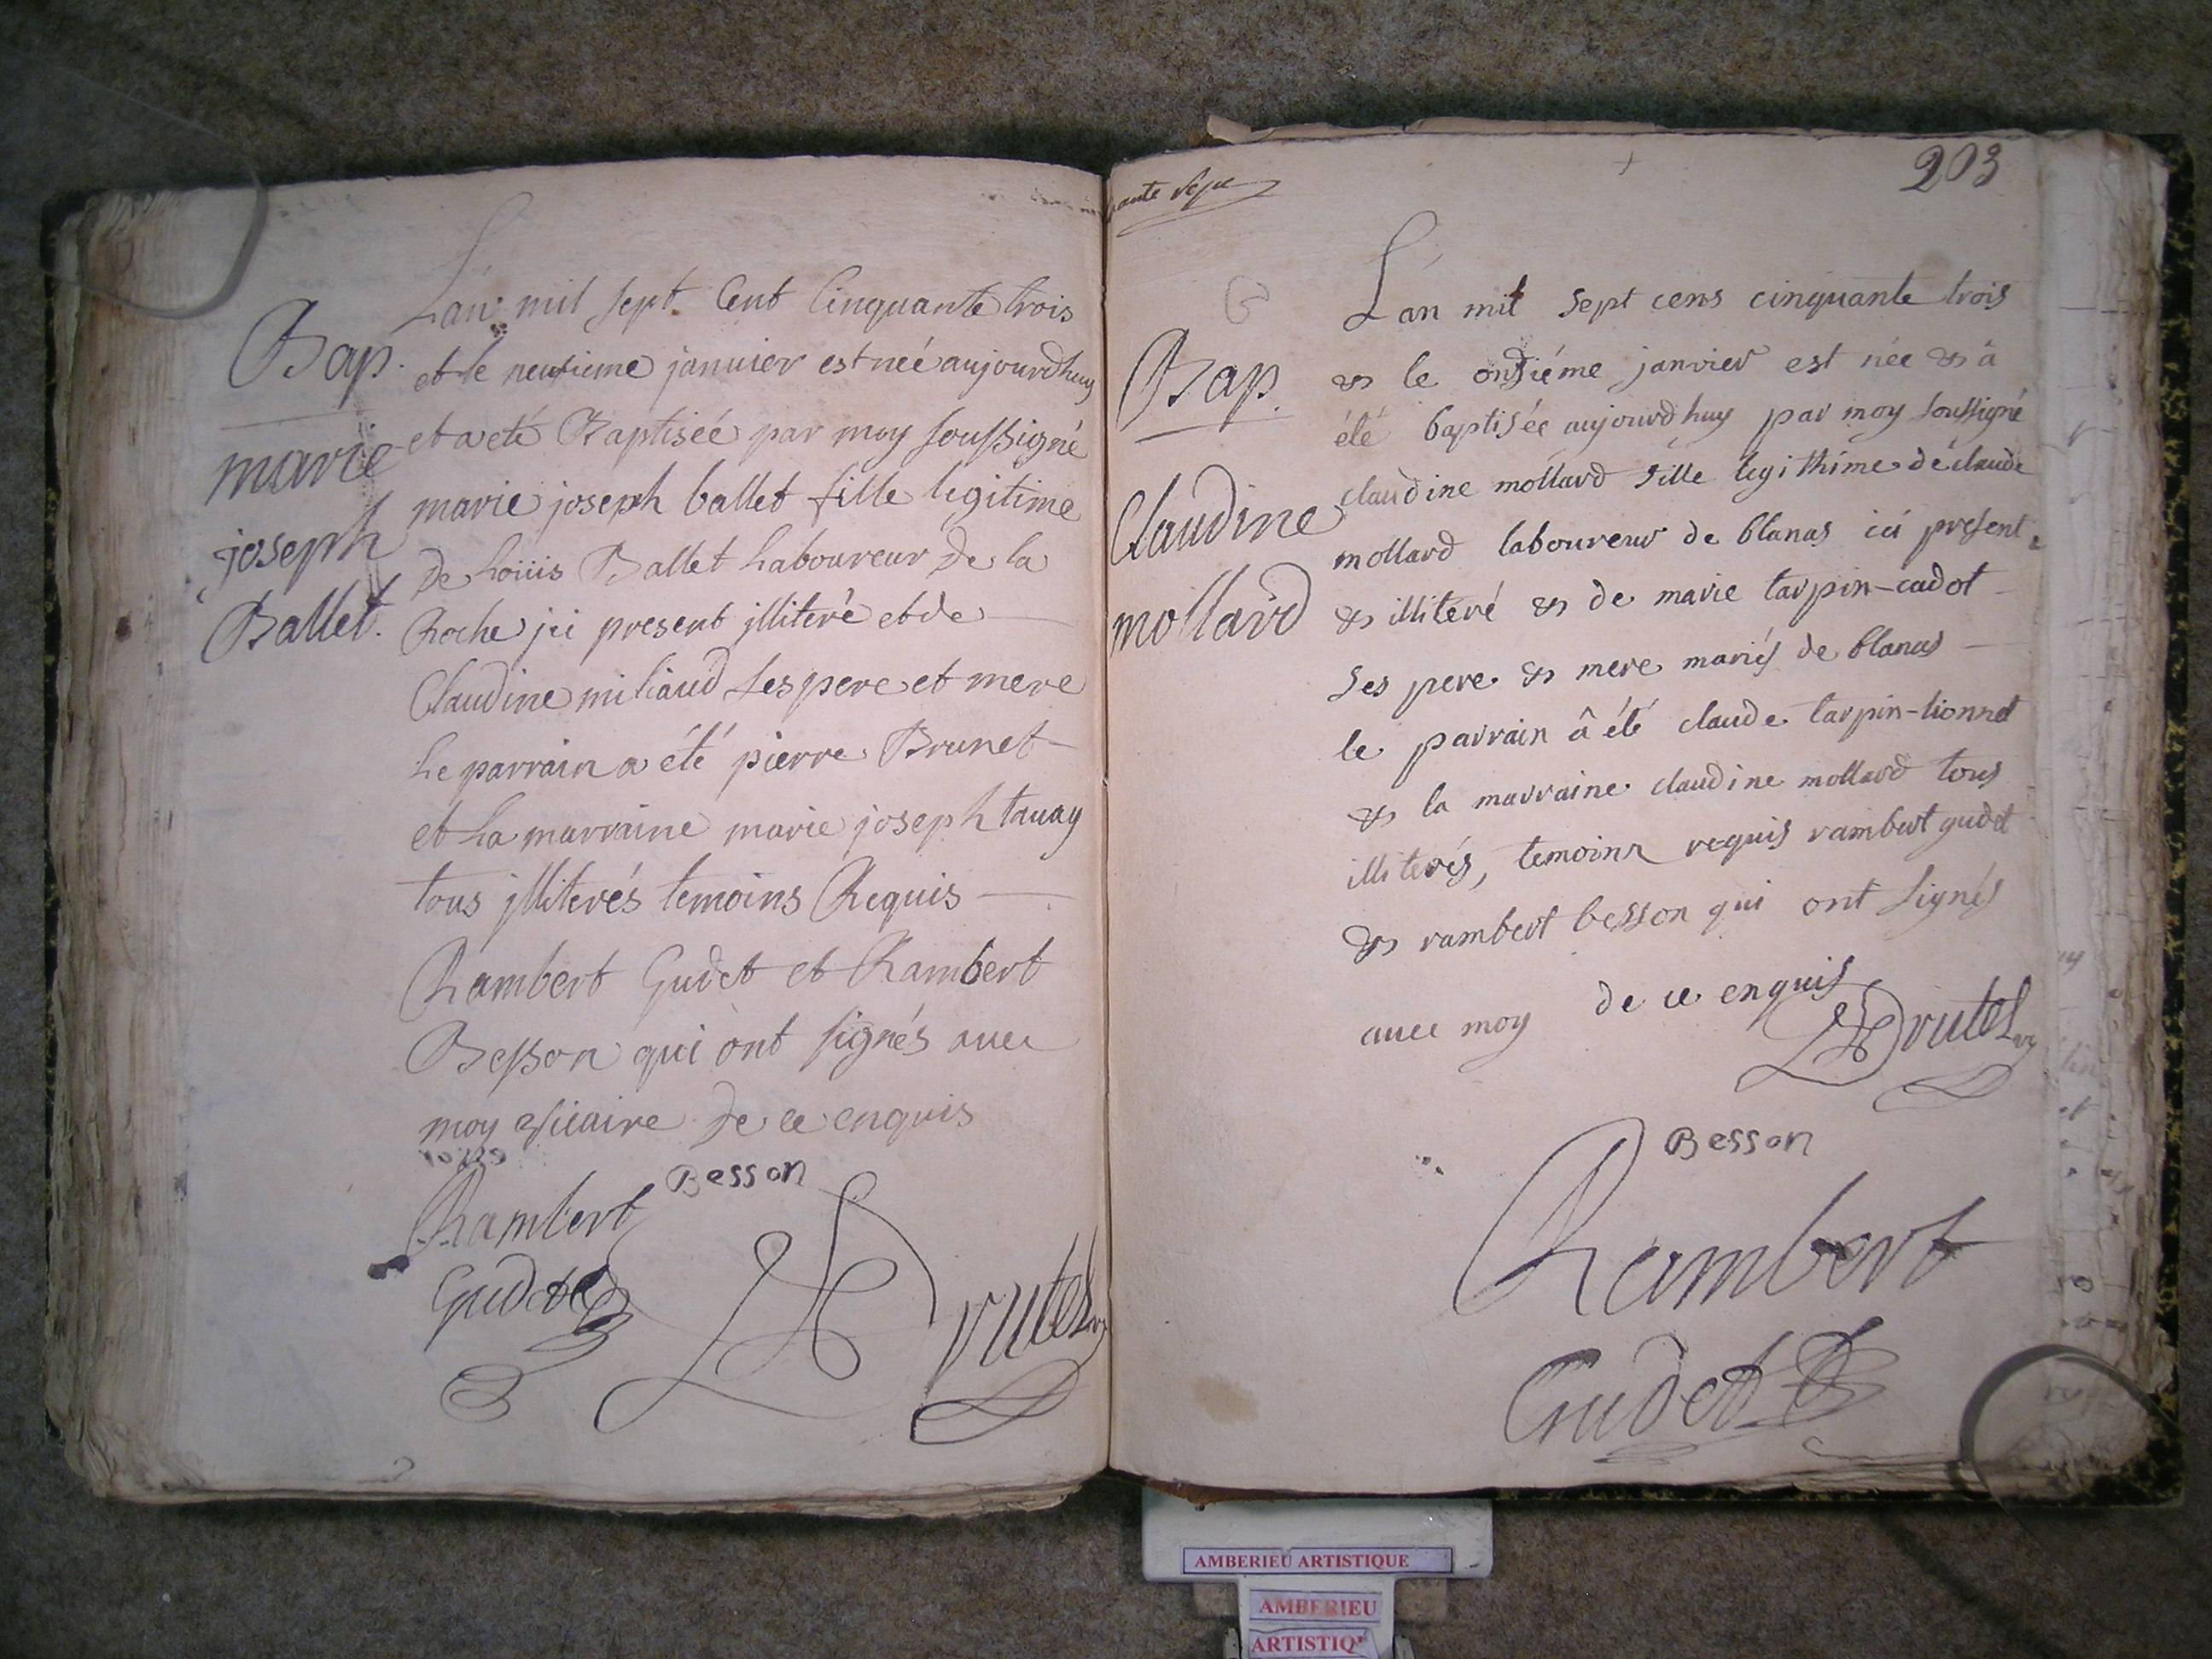 Bap.
marie
joseph
Ballet.
L'an mil sept Cent Cinquante trois
et le neufieme januier est néé aujourdhuy
et a eté Baptiséé par moy soussigné
marie joseph ballet fille legitime
de Loüis Ballet Laboureur de la
Roche jci present jlliteré et de
Claudine miliaud ses pere et mere
Le parrain a été pierre Brunet
et La marraine marie joseph tauay
tous jlliterés temoins Requis
Rambert Gudet et Rambert
Besson qui ont signés auec
moy vicaire de ce enquis
Besson
Rambert
Gudet
Drutel
203
Bap.
Claudine
mollard
L'an mil sept cens cinquante trois
& le onsiéme janvier est née & â
été baptisée aujourdhuy par moy soussigné
claudine mollard fille legithime de claude
mollard laboureur de blanas ici present
& illiteré & de marie tarpin-cadot
ses pere & mere mariés de blanas
le parrain â été claude tarpin-lionnet
& la marraine claudine mollard tous
illiterés, temoins requis rambert gudet
& rambert besson qui ont signés
auec moy de ce enquis
Drutel
Besson
Rambert
Gudet
AMBERIEU ARTISTIQUE
AMBERIEU
ARTISTIQ